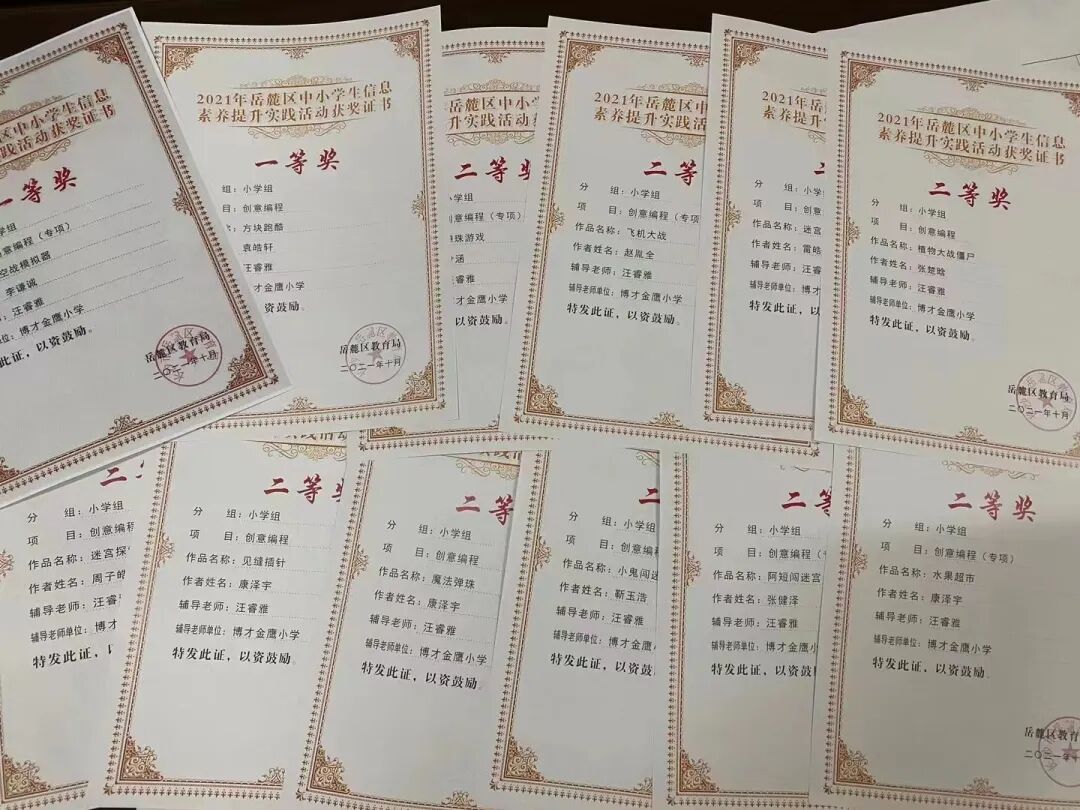 区中小学生信息
实践活动获奖证书
一等奖
学组
意编程（专项）
空战模拟器
李谦诚
汪睿雅
博才金鹰小学
此证，以资鼓励。
岳麓区教育局
二〇二一年十月
2021年岳麓区中小学生信息
素养提升实践活动获奖证书
一等奖
组：小学组
目：创意编程
方块跑酷
袁皓轩
汪睿雅
博才金鹰小学
资鼓励。
岳麓区教育局
二〇二一年十月
岳麓区中小学生
升实践活动获奖
二等奖
小学组
创意编程（专项）
珠游戏
涵
睿雅
才金鹰小学
以资鼓励。
2021年岳麓区中小学
素养提升实践活动获
二等
分 组：小学组
项 目：创意编程（专项
作品名称：飞机大战
作者姓名：赵胤全
辅导老师：汪睿雅
辅导老师单位：博才金鹰小学
特发此证，以资鼓励。
2021年岳麓
素养提升
二
分 组：小学组
项 目：创意
作品名称：迷宫
作者姓名：雷皓
辅导老师：汪睿
辅导老师单位：博才
特发此证，以
2021年岳麓区中小学生信息
素养提升实践活动获奖证书
二等奖
分 组：小学组
项 目：创意编程
作品名称：植物大战僵尸
作者姓名：张楚晗
辅导老师：汪睿雅
辅导老师单位：博才金鹰小学
特发此证，以资鼓励。
岳麓区教育局
二〇二一年十月
二
分 组：小学组
项 目：创意编程
作品名称：迷宫探
作者姓名：周子皓
辅导老师：汪睿
辅导老师单位：博才
特发此证，以
实践活动
二等奖
分 组：小学组
项 目：创意编程
作品名称：见缝插针
作者姓名：康泽宇
辅导老师：汪睿雅
辅导老师单位：博才金鹰小学
特发此证，以资鼓励。
实践活
二等
分 组：小学组
项 目：创意编程
作品名称：魔法弹珠
作者姓名：康泽宇
辅导老师：汪睿雅
辅导老师单位：博才金鹰小学
特发此证，以资鼓励。
二
分 组：小学组
项 目：创意编
作品名称：小鬼闯迷
作者姓名：靳玉浩
辅导老师：汪睿雅
辅导老师单位：博才金鹰
特发此证，以资鼓
二等
分 组：小学组
项 目：创意编程（
作品名称：阿短闯迷宫
作者姓名：张健泽
辅导老师：汪睿雅
辅导老师单位：博才金鹰小
特发此证，以资鼓
二等奖
分 组：小学组
项 目：创意编程（专项）
作品名称：水果超市
作者姓名：康泽宇
辅导老师：汪睿雅
辅导老师单位：博才金鹰小学
特发此证，以资鼓励。
岳麓区教育
二〇二一年十